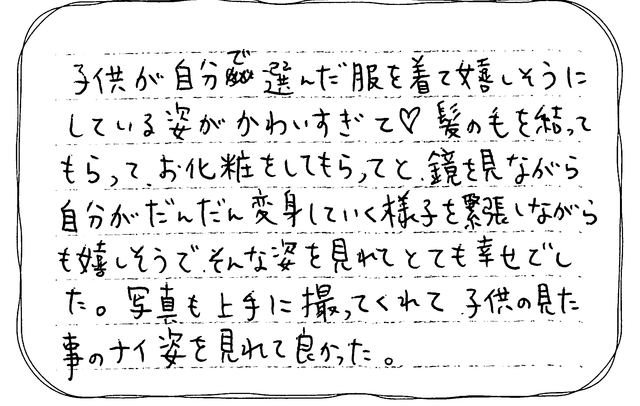 子供が自分で選んだ服を着て嬉しそうに
している姿がかわいすぎて♡ 髪の毛を結って
もらって、お化粧をしてもらってと、鏡を見ながら
自分がだんだん変身していく様子を緊張しながら
も嬉しそうで、そんな姿を見れてとても幸せでし
た。写真も上手に撮ってくれて、子供の見た
事のナイ姿を見れて良かった。